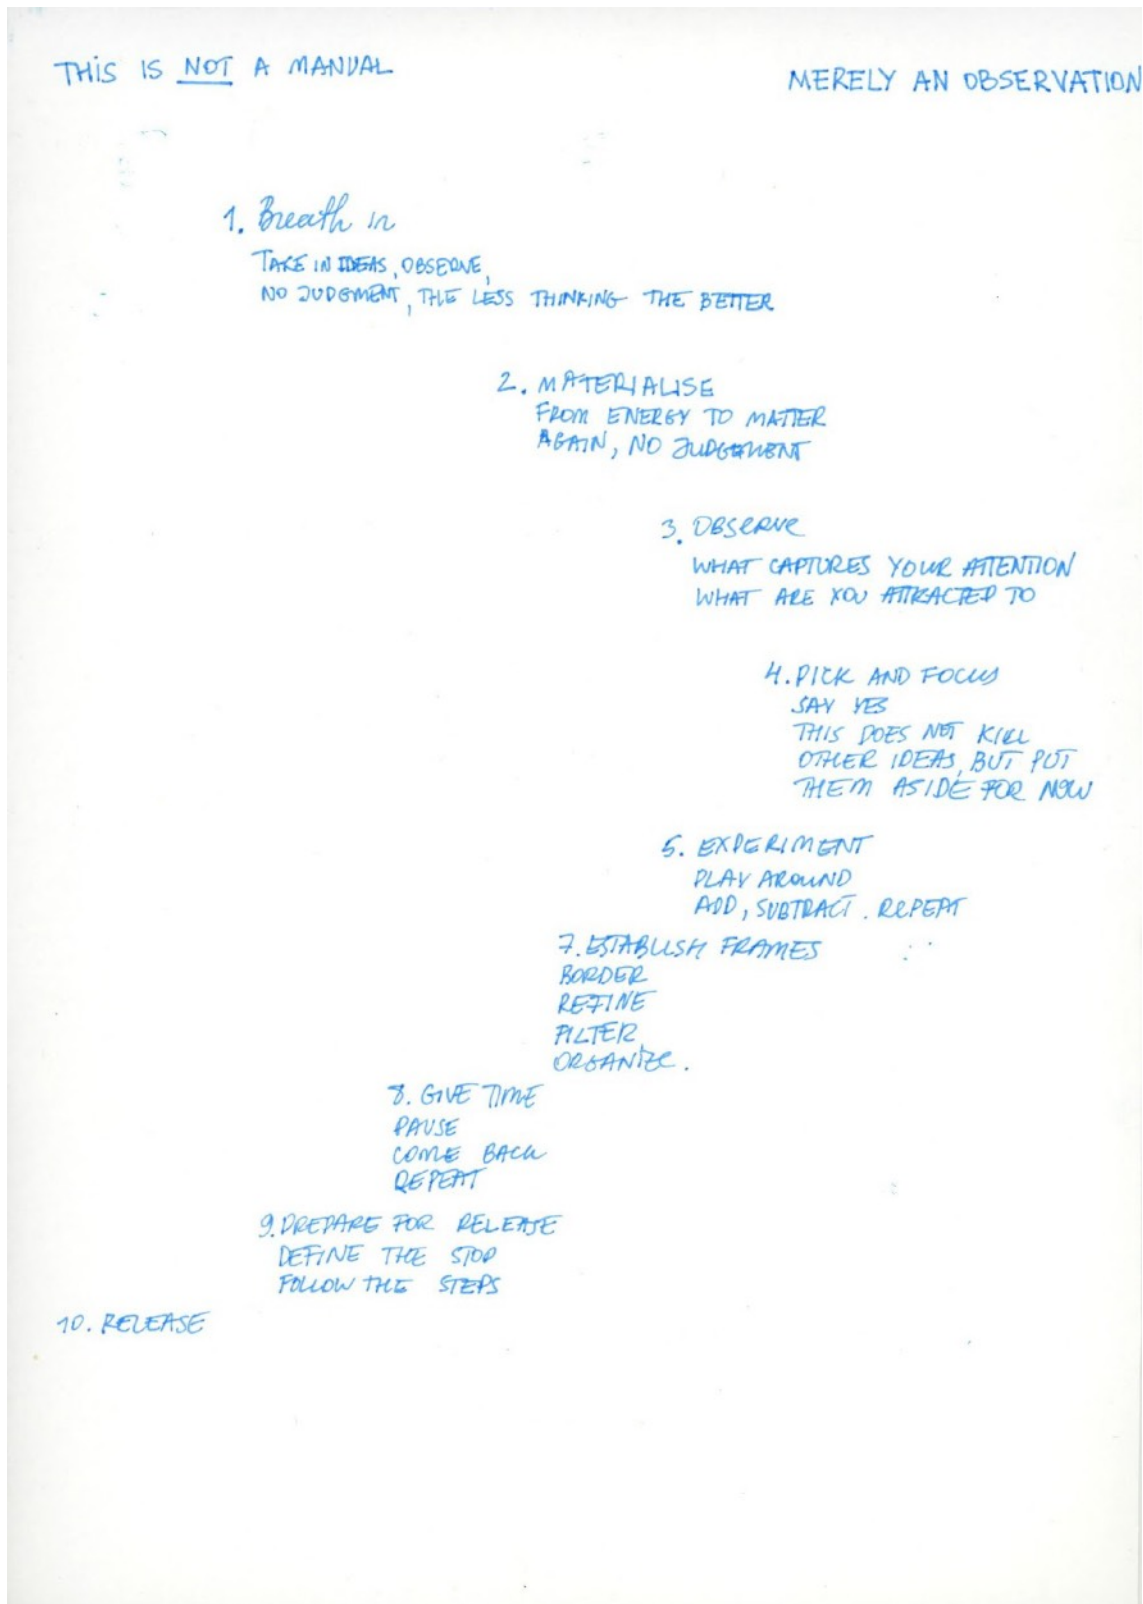 THIS IS NOT A MANUAL
MERELY AN OBSERVATION
1. Breath in
TAKE IN IDEAS, OBSERVE,
NO JUDGMENT, THE LESS THINKING THE BETTER
2. MATERIALISE
FROM ENERGY TO MATTER
AGAIN, NO JUDGEMENT
3. OBSERVE
WHAT CAPTURES YOUR ATTENTION
WHAT ARE YOU ATTRACTED TO
4. PICK AND FOCUS
SAY YES
THIS DOES NOT KILL
OTHER IDEAS, BUT PUT
THEM ASIDE FOR NOW
5. EXPERIMENT
PLAY AROUND
ADD, SUBTRACT. REPEAT
7. ESTABLISH FRAMES
BORDER
REFINE
FILTER
ORGANIZE.
8. GIVE TIME
PAUSE
COME BACK
REPEAT
9. PREPARE FOR RELEASE
DEFINE THE STOP
FOLLOW THE STEPS
10. RELEASE